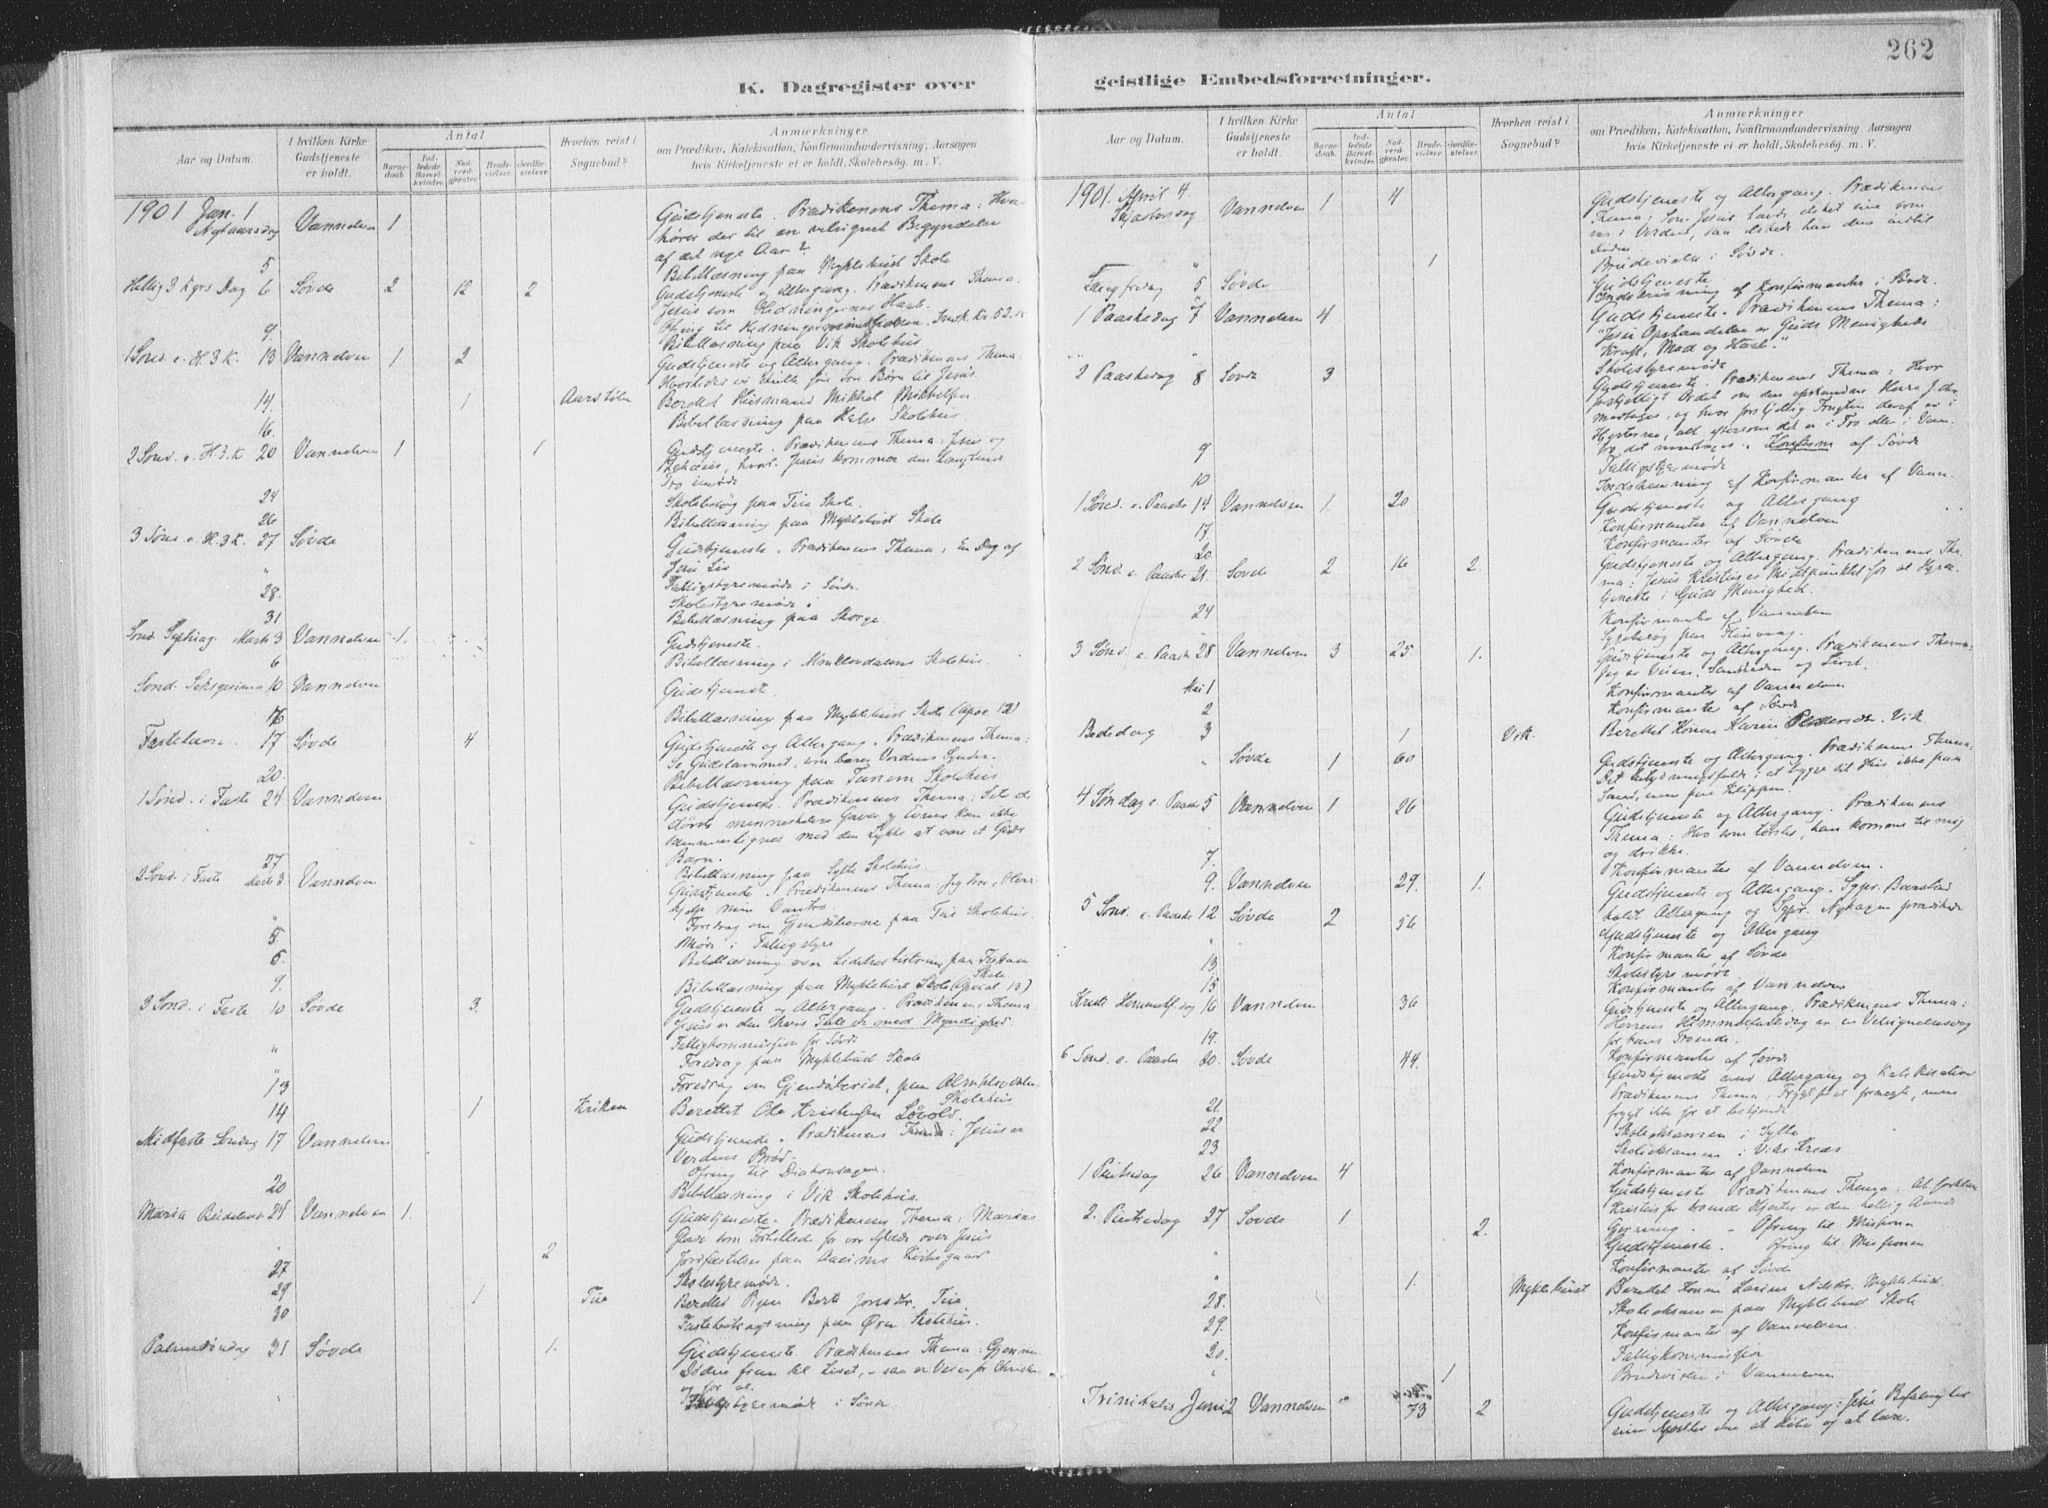 262
K. Dagregister over geistlige Embedsforretninger.
Aar og Datum.
I hvilken Kirke Gudstjeneste er holdt.
Antal
Barne-daab.
Ind-ledede Barsel-kvinder.
Nad-verd-gjester.
Brude-vielser.
Jordfæ-stelser.
Hvorhen reist i Sognebud?
Anmærkninger
om Prædiken, Katekisation, Konfirmandundervisning, Aarsagen
hvis Kirketjeneste ei er holdt, Skolebesøg. m. V.
1901 Jan. 1 Vannelven 1 Gudstjeneste. Prædikenens Thema: Hvad
Nytaarsdag hører der til en velsignet Begyndelse
af det nye Aar?
5 Bibellæsning paa Myklebust Skole
Hellig 3 Kgrs Dag 6 Søvde 2 12 2 Gudstjeneste og Altergang. Prædikenens Thema.
Jesus som Hedningernes Haab.
9. Bibellæsning paa Vik Skolehus
1 Sønd. e. H. 3 K. 13 Vannelven 1 2 Gudstjeneste og Altergang. Prædikenens Thema.
14. 1 Berettet Husmand Mikkel Mikkelsen
16. Bibellæsning paa Skolehus
2 Sønd. e. H. 3. K 20 Vannelven 1 1 Gudstjeneste. Prædikenens Thema: Jesus og
24 Skolebesøg paa Skole.
26 Bibellæsning paa Myklebust Skole
3 Sønd e. H. 3 K. 27 Søvde Gudstjeneste. Prædikenens Thema: En Dag af
Jesu Liv
" Fattigstyremøde i Søvde.
28. Skolestyremøde
31 Bibellæsning paa
Sønd. Septuag. 3 Vannelven 1. Gudstjeneste.
6 Bibellæsning i Almklovdalens Skolehus.
Sønd. Seksagesima 10 Vannelven Gudstjeneste
16 Bibellæsning paa Myklebust Skole
Fastelavn. 17 Søvde 4 Gudstjeneste og Altergang. Prædikenens Thema:
Se Guds Lammet, som bærer Verdens Synder.
20. Bibellæsning paa Skolehus
1 Sønd. i Faste 24 Vannelven Gudstjeneste. Prædikenens Thema: Selv de
største menneskelige Gaver og kan ikke
sammenlignes med den Lykke at være et Guds
Barn.
27 Bibellæsning paa Sylte Skolehus
2 Sønd. i Faste Marts 3 Vannelven Gudstjeneste. Prædikenens Thema: Jeg tror, Herre
hjelp min Vantro
" Foredrag om paa Skolehus.
5. Møde i Fattigstyre
6. Bibellæsning over Lidelseshistorien paa
Skole
9. Bibellæsning paa Myklebust Skole
3 Sønd. i Faste 10 Søvde 3. Gudstjeneste og Altergang. Prædikenens Thema
Jesus er den hvis Tale er med Myndighed
Fattigkommission for Søvde
" Foredrag paa Myklebust Skole
13 Foredrag om paa Almklovdalens
Skolehus
14 1 Kriken Berettet Ole Kristensen Løvold.
Midfaste Søndag 17 Vannelven Gudstjeneste. Prædikenens Thema: Jesus er
Verdens Brød.
Ofring til Diakonsagen.
20 Bibellæsning i Vik Skolehus.
Maria Budskab 24 Vannelven 1. Gudstjeneste. Prædikenens Thema: Marias
Glæde som Forbillede for vor Glæde over Jesus
" 2 Jordfæstelse paa Kirkegaard
27 Skolestyremøde.
29 1 Berettet Pigen
30
Palmesøndag 31 Søvde 1. Gudstjeneste. Prædikenens Thema: Gjennem
Døden frem til Livet, saa er Veien for Christus
og for os.
" Skolestyremøde i Søvde.
Aar og Datum.
I hvilken Kirke Gudstjeneste er holdt.
Antal
Barne-daab.
Ind-ledede Barsel-kvinder.
Nad-verd-gjester.
Brude-vielser.
Jordfæ-stelser.
Hvorhen reist i Sognebud?
Anmærkninger
om Prædiken, Katekisation, Konfirmandundervisning, Aarsagen
hvis Kirketjeneste ei er holdt, Skolebesøg. m. V.
1901. April 4 Vannelven 1 4 Gudstjeneste og Altergang. Prædikenens
Skjærtorsdag Thema: Som Jesus havde elsket sine som
var i Verden, saa elskede han dem indtil
Døden.
" 1 Brudevielse i Søvde.
Langfredag 5 Søvde Gudstjeneste
Indskrivning af Konfirmanter i Søvde.
1 Paaskedag 7 Vannelven 4 Gudstjeneste. Prædikenens Thema:
"Jesu Opstandelse er Guds Menigheds
Kraft, Mod og Haab."
" Skolestyremøde
2 Paaskedag 8 Søvde 3 Gudstjeneste. Prædikenens Thema: Hvor
forskjelligt Ordet om den opstandne Herre Jesus
modtages, og hvor forskjellig Frugten deraf er i
Hjerterne, alt eftersom det er i Tro eller i Van-
tro det modtages. Konfirm af Søvde
9 Fattigstyremøde
10 Indskrivning af Konfirmanter af Vann.
1 Sønd. e. Paaske 14 Vannelven 1. 20 Gudstjeneste og Altergang
17 Konfirmanter af Vannelven
20. Konfirmanter af Søvde
2 Sønd. e. Paaske 21. Søvde 2 16 2. Gudstjeneste og Altergang. Prædikenens The-
ma: Jesus Kristus er Midtpunktet for al Hyrde-
tjeneste i Guds Menighed.
24 Konfirmanter af Vannelven
3 Sønd e. Paaske 28 Vannelven 3 25 1. Gudstjeneste og Altergang. Prædikenens Thema:
Jeg er Veien, Sandheden og Livet.
Mai 1 Konfirmanter af Vannelven
2 Konfirmanter af Søvde
Bededag 3 1 Vik. Berettet Konen Karen Pedersdt. Vik
" Søvde 1 60 Gudstjeneste og Altergang. Prædikenens Thema:
Det i at bygge sit Hus ikke paa
Sand, men paa Klippen.
4 Søndag e. Paaske 5 Vannelven 1 26 Gudstjeneste og Altergang. Prædikenens
Thema: Hvo som tørster, han komme til mig
og drikke.
7. Konfirmanter af Vannelven.
9. Vannelven 29. 1. Gudstjeneste og Altergang. Sgpr. Barstad
holdt Altergang og Sgpr. prædikede
5 Sønd. e. Paaske 12 Søvde 2 36 Gudstjeneste og Altergang
" Konfirmanter af Søvde
13 Skolestyremøde
15 Konfirmanter af Vannelven
Kristi Himmelf. dag 16 Vannelven 36 Gudstjeneste og Altergang. Prædikenens Thema:
Herrens Himmelfartsdag er en Velsignelsesdag
for hans Troende.
19. Konfirmanter af Søvde
6 Sønd. e. Paaske 20. Søvde 44. Gudstjeneste med Altergang og Katekisation
Prædikenens Thema: Frygt for at fornegte, men
frygt ikke for at bekjende
21. Skoleeksamen i Sylte
22 Skoleeksamen i Viks Kreds
23 Konfirmanter af Vannelven
1 Pintsedag 26 Vannelven 4 Gudstjeneste Prædikenens Thema. At forklare
Kristus for troende Hjerter er den hellig Aands
Gjerning. Ofring til Missionen
2. Pintsedag 27 Søvde 1 2. Gudstjeneste. Ofring til Missionen
" Konfirmanter af Søvde
" 1. Myklebust Berettet Konen Larine Nilsdr. Myklebust.
28. Skoleeksamen paa Myklebust Skole
29. Konfirmanter af Vannelven.
30. Fattigkommission
" 1 Brudevielse i Vannelven
Trinitatis Juni 2 Vannelven " 73 2 Gudstjeneste og Altergang: Jesu Befaling til
sine Apostler om at døbe og at lære.